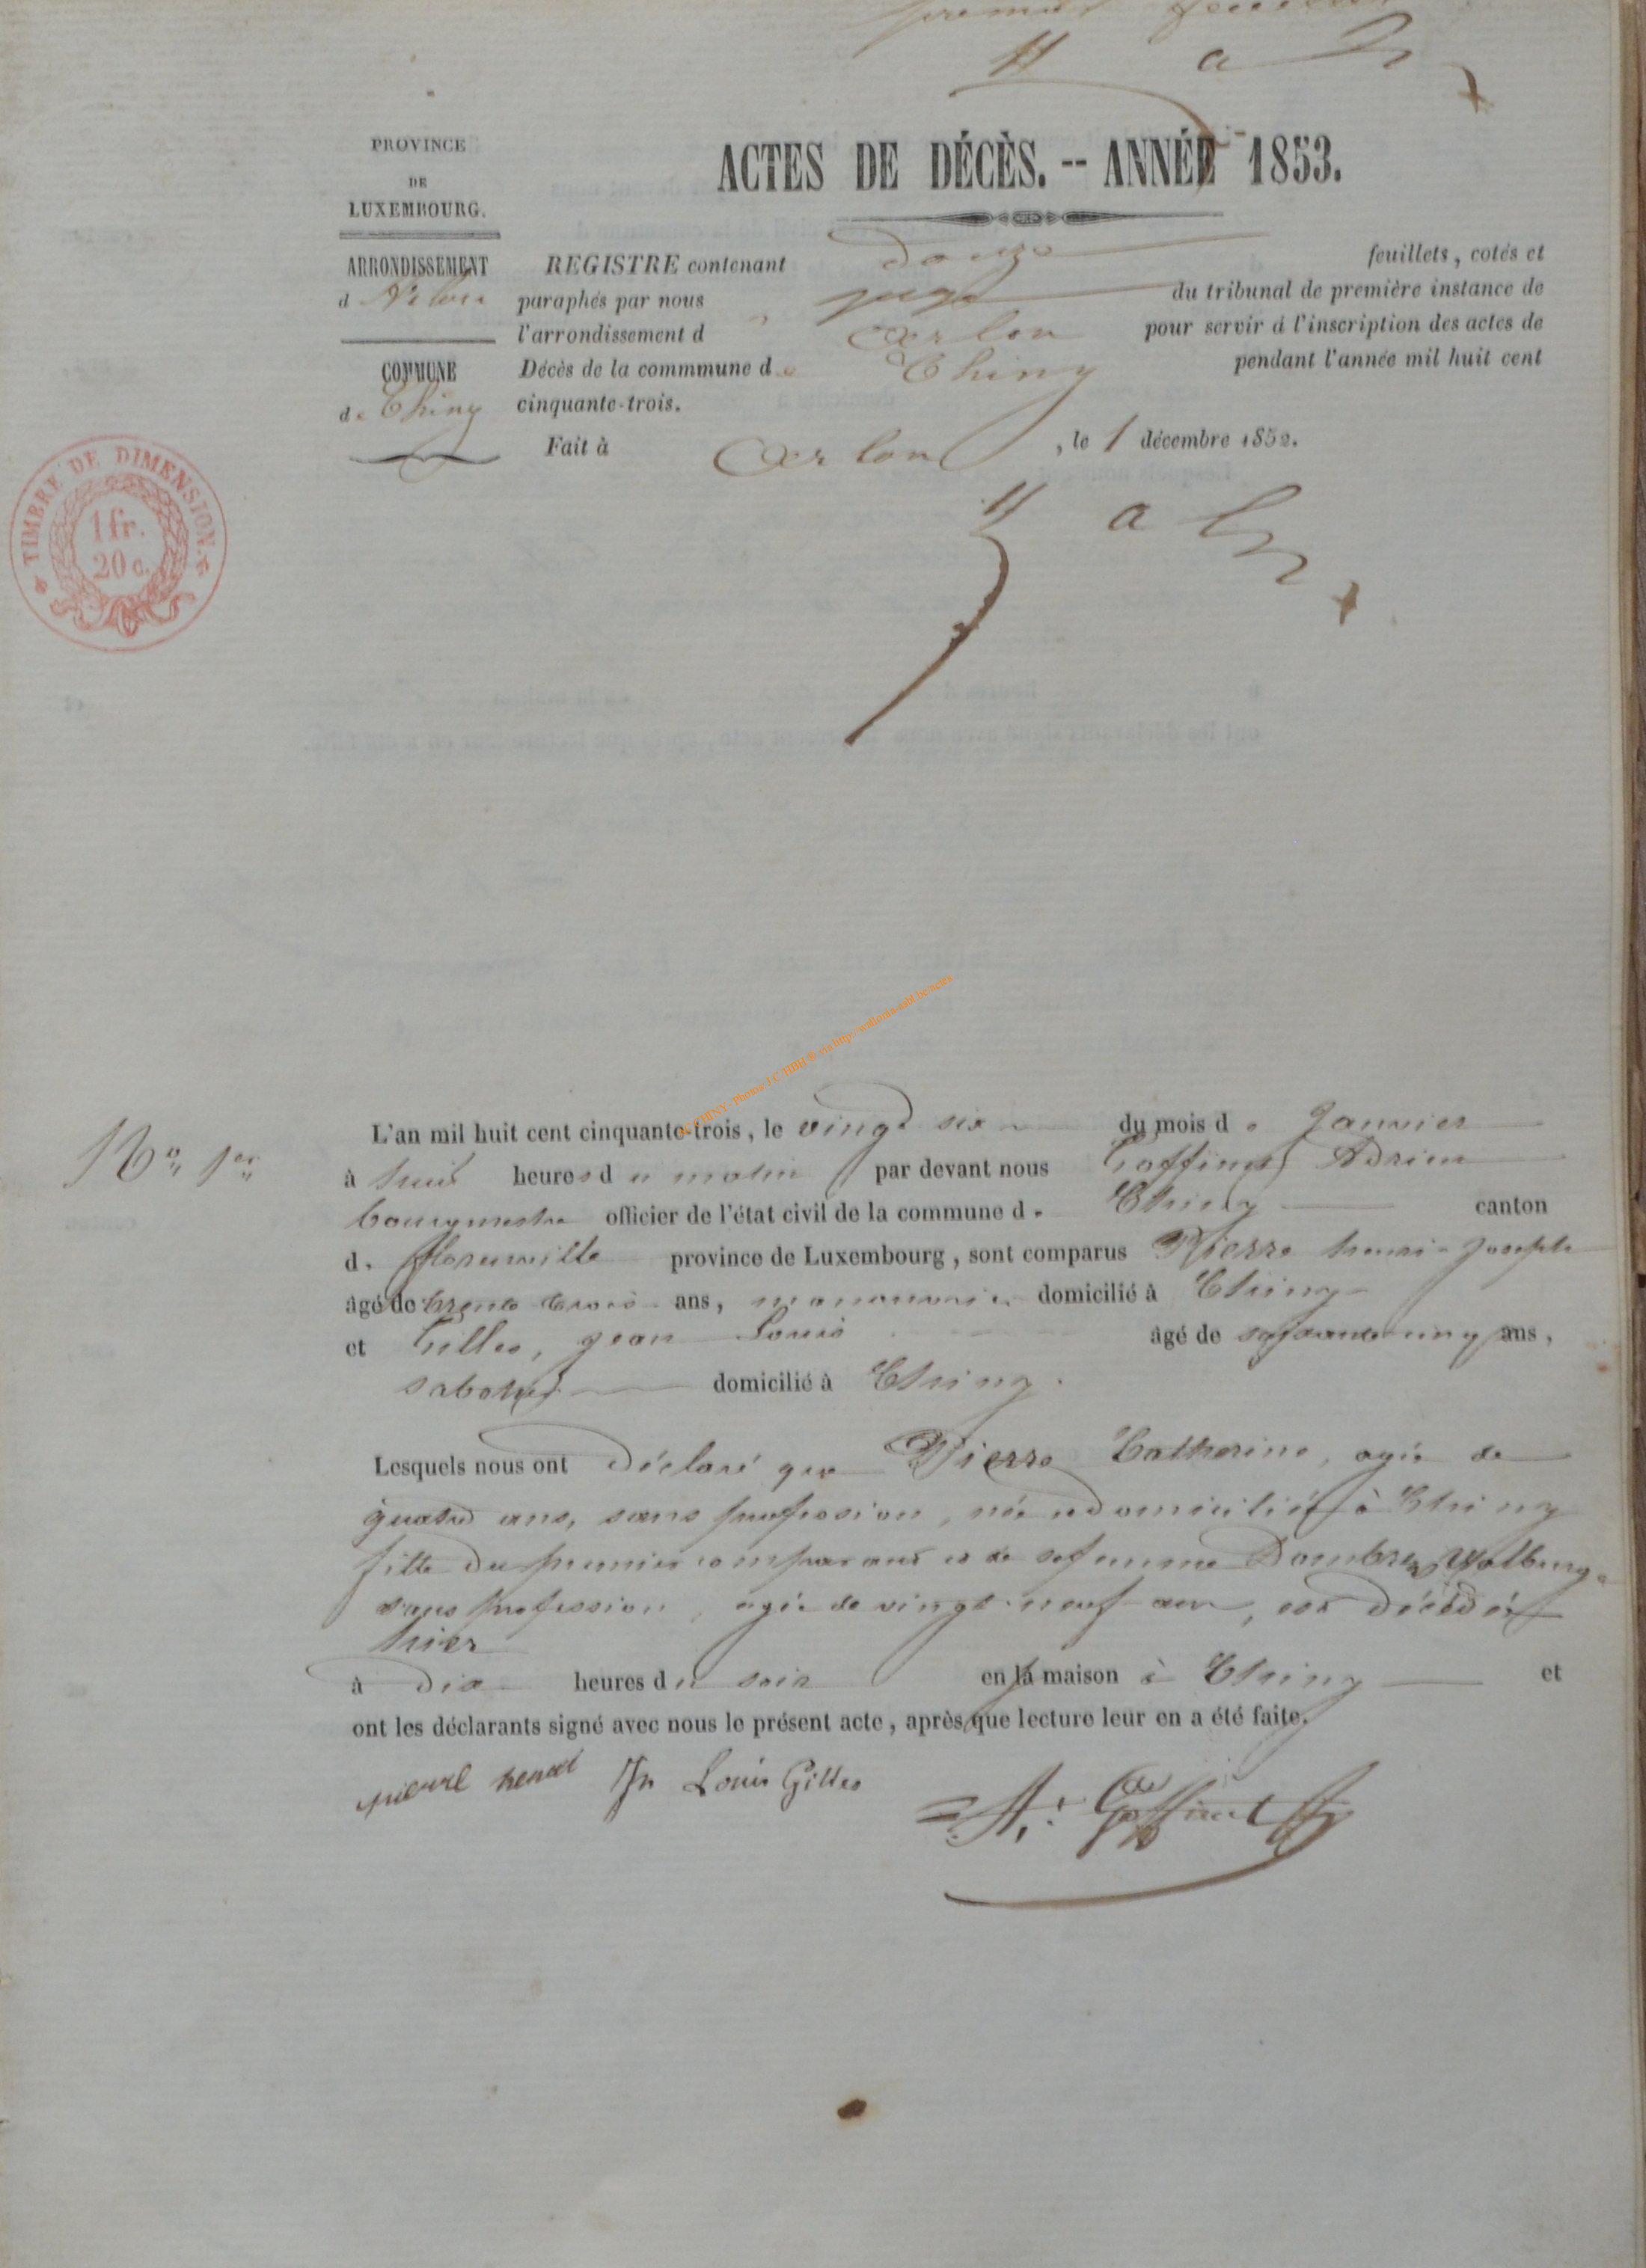 premier feuillet
PROVINCE
DE
LUXEMBOURG.
ACTES DE DÉCÈS. -- ANNÉE 1853.
ARRONDISSEMENT
d'Arlon
COMMUNE
de Chiny
REGISTRE contenant douze feuillets, cotés et
paraphés par nous juge du tribunal de première instance de
l'arrondissement d'Arlon pour servir à l'inscription des actes de
Décès de la commmune de Chiny pendant l'année mil huit cent
cinquante-trois.
Fait à Arlon, le 1 décembre 1852.
TIMBRE DE DIMENSION.
1 fr.
20 c.
No 1er
L'an mil huit cent cinquante-trois, le vingt six du mois de Janvier
à huit heures du matin par devant nous Goffinet Adrien
bourgmestre officier de l'état civil de la commune de Chiny canton
de florenville province de Luxembourg, sont comparus Pierre henri-Joseph
âgé de trente trois ans, manouvrier domicilié à Chiny
et Gilles, jean Louis âgé de ans,
sabotier domicilié à Chiny.
Lesquels nous ont déclaré que Pierre Catherine, agée de
quatre ans, sans profession, née et domiciliée à Chiny
fille du premier comparant et de sa femme Dombret Walburge
sans profession, agée de vingt-neuf ans, est décédée
hier
à dix heures du soir en la maison à Chiny et
ont les déclarants signé avec nous le présent acte, après que lecture leur en a été faite.
pierre henri Jn Louis Gilles
A. Goffinet